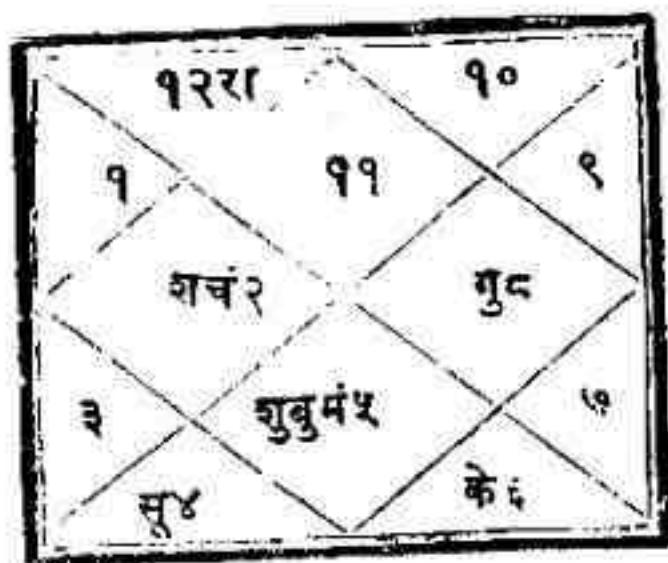 १२रा १०
१ ११ ९
शचं२ गु८
३ शुबुमं५ ७
सू४ के६